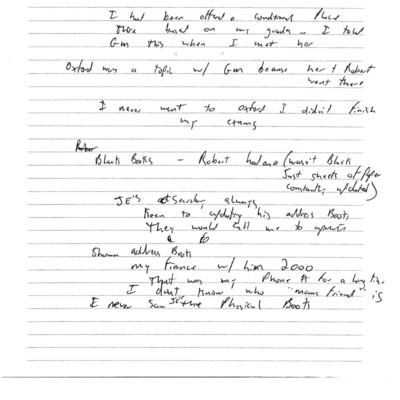 I had been offered a conditional place
there based on my grades .. I told
Gm this when I met her
Oxford was a topic w/ Gm because her + Robert
went there
I never went to oxford I didn't finish
my exams
Black Books - Robert had one (wasn't Black
Just sheets of paper
constantly updated)
JE's Secretary always
keen to updating his address Book
they would call me to update
Shown address Book
my fiance w/ him 2000
That was my Phone # for a long time.
I don't know who "moms friend" is
I never saw JE's the Physical Book